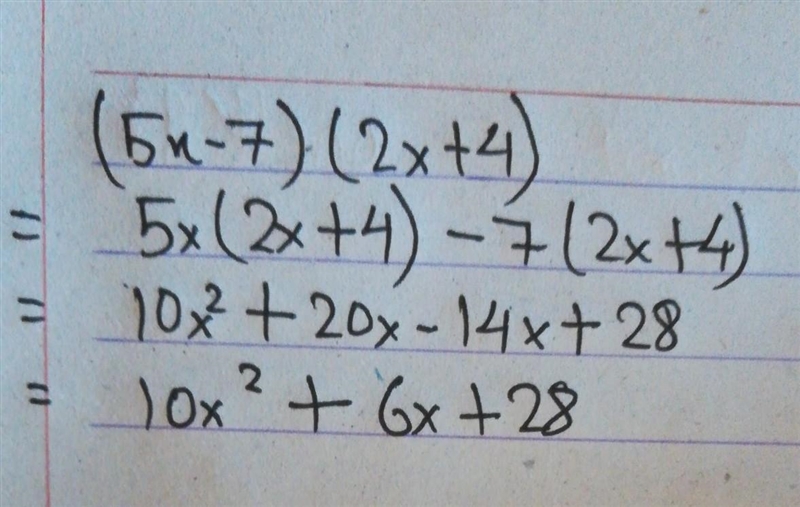 (5x-7)(2x+4)
= 5x(2x+4) - 7(2x+4)
= 10x² + 20x - 14x + 28
= 10x² + 6x + 28